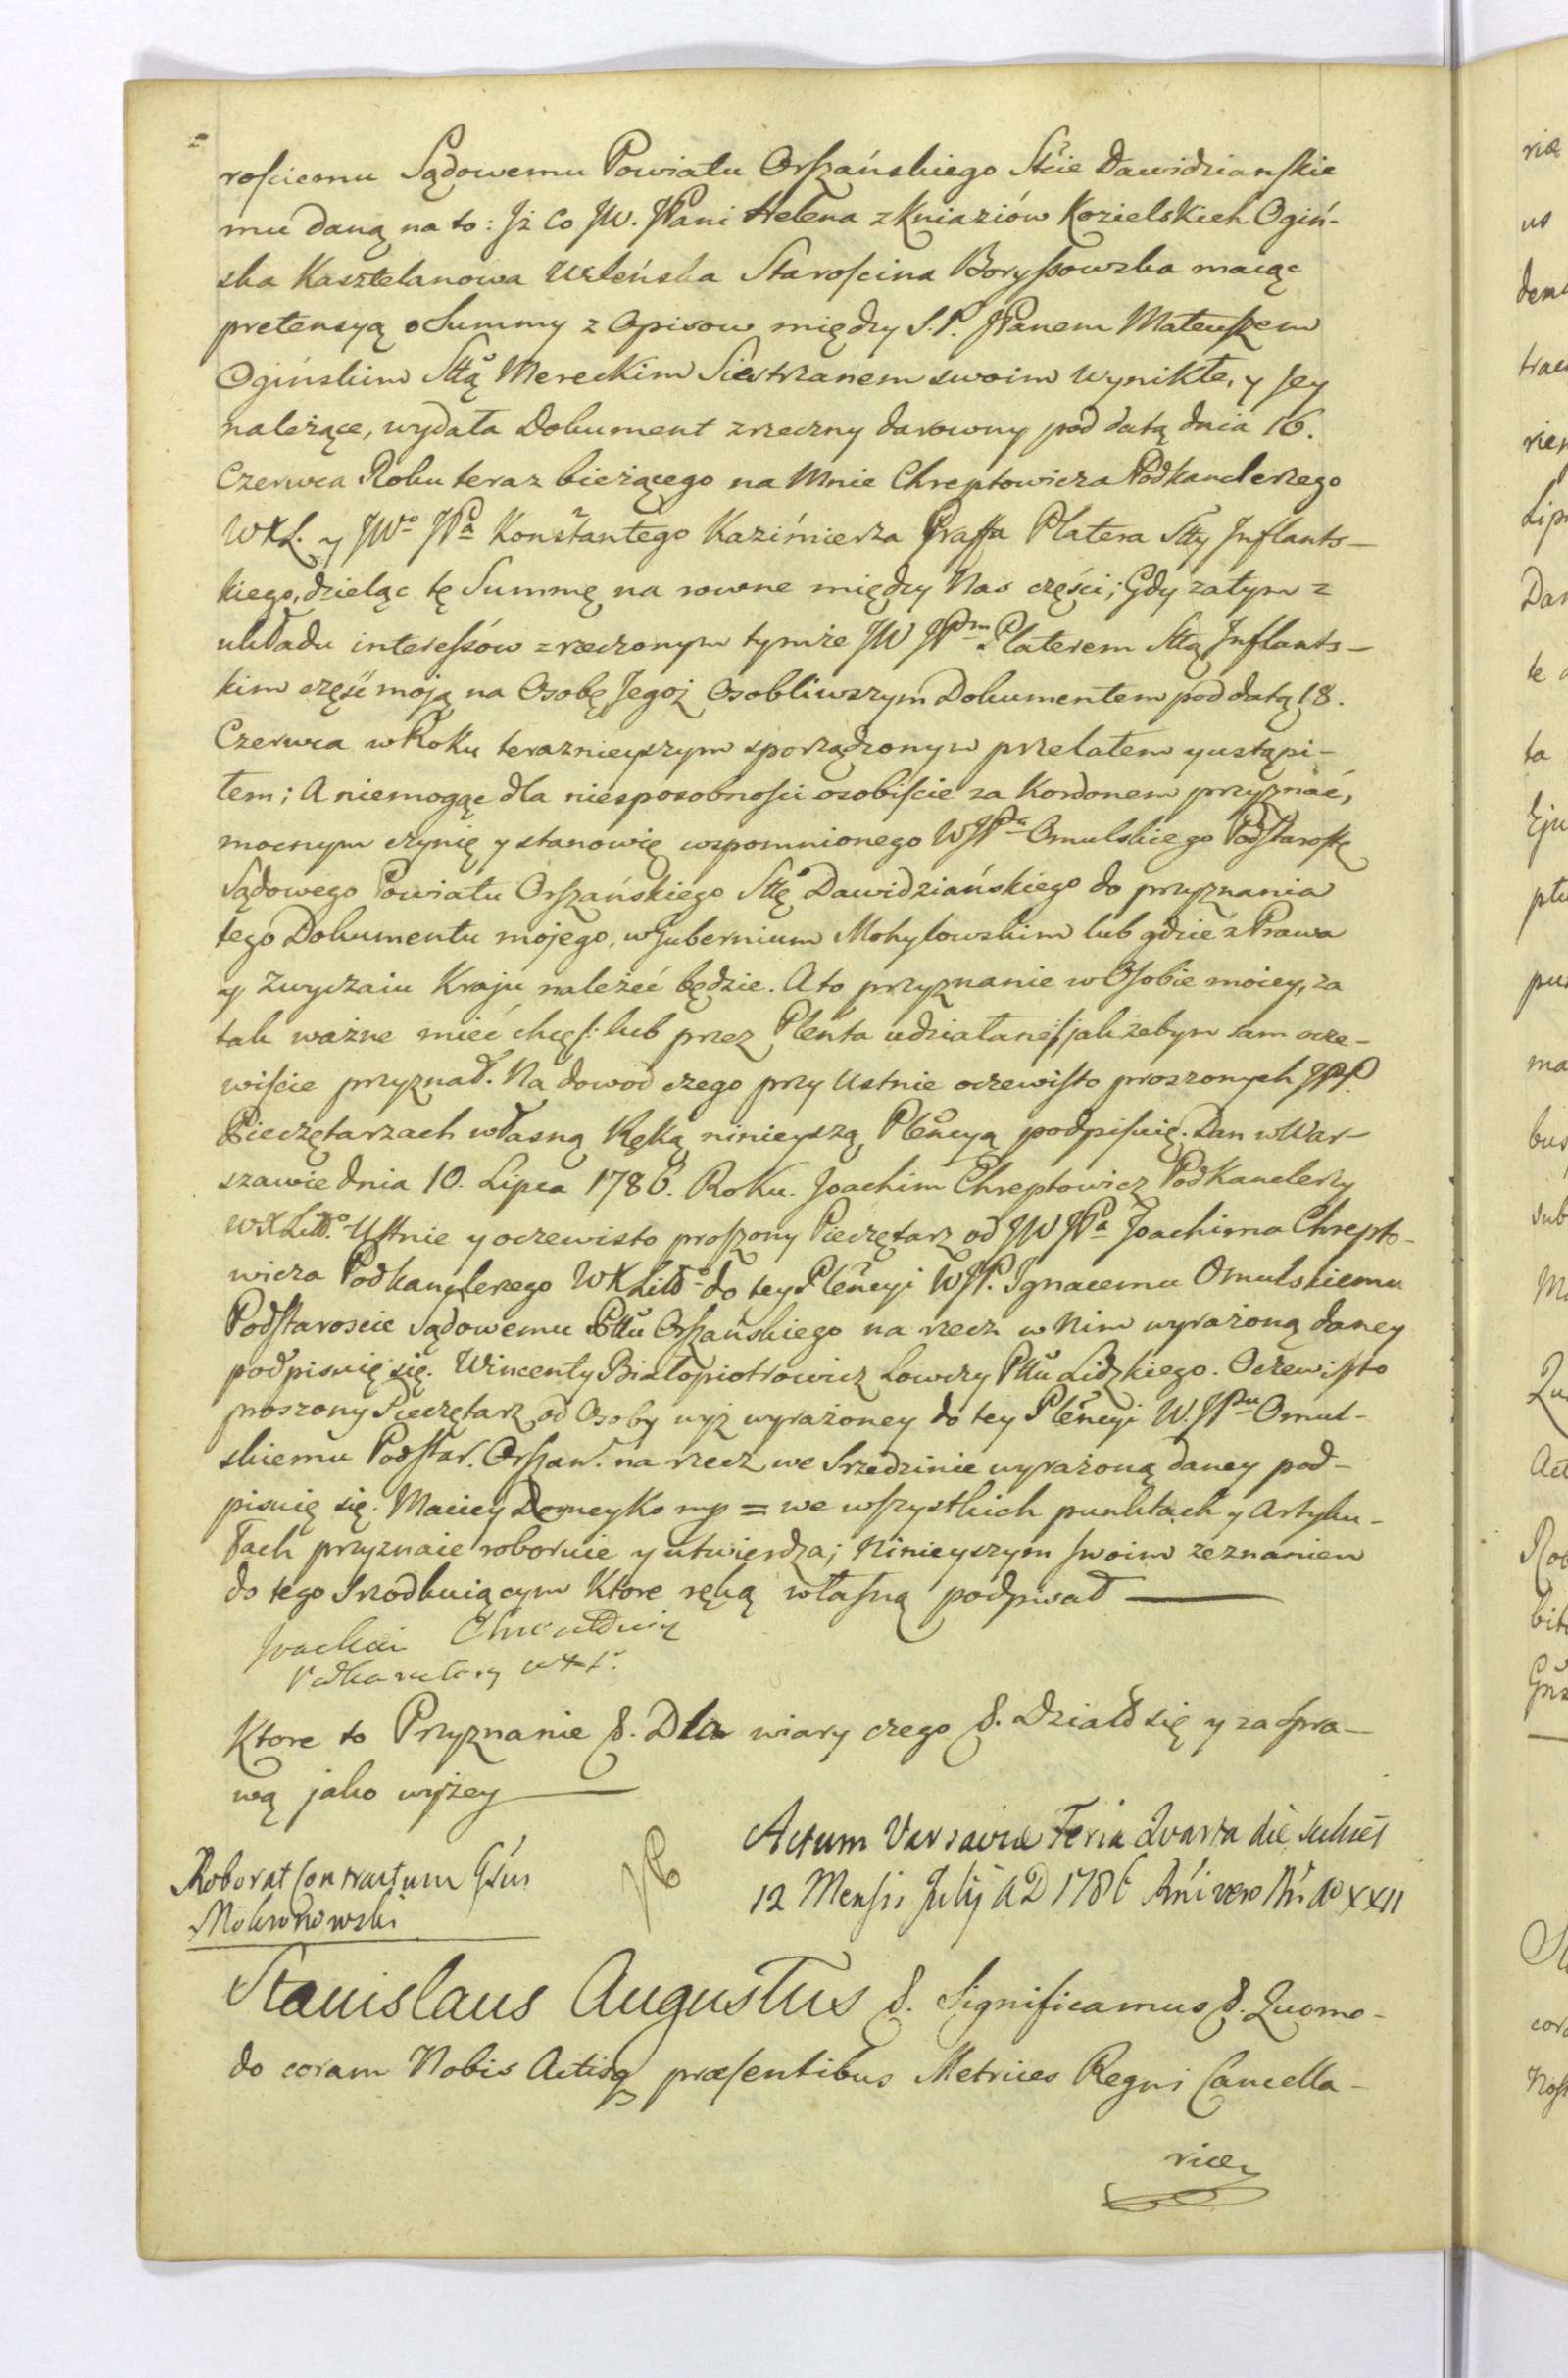 rosciemu Sądowemu Powiatu Orszańskiego Sttcie Dawidzianskie
mu daną na to: Iż Co JW. JPani Helena z Kniaziów Kozielskich Ogiń-
ska Kasztelanowa Wileńska Staroscina Boryssowska maiąc
pretensyą o Summy z Opisow między S. P. JPanem Mateuszem
Ogińskim Sttą Mereckim Siestrzanem swoim wynikłe, y Jey
należące, wydała Dokument zrzeczny darowny pod datą dnia 16.
Czerwca Roku teraz bieżącego na Mnie Chreptowicza Podkanclerzego
WXL. y JWo JPa Konstantego Kazimierza Graffa Platera Stty Inflants-
kiego, dzieląc tę Summę na rowne między Nas części; Gdy zatym z
układu interessów z rzeczonym tymże JW JPm Platerem Sttą Inflants-
kim część moją na Osobę Jegoż Osobliwszym Dokumentem pod datą 18.
Czerwca w Roku teraznieyszym sporządzonym przelałem y ustąpi-
łem; A niemogąc dla niesposobności osobiście za Kordonem przyznać,
mocnym czynię y stanowię wspomnionego WJPa Omulskiego Podstarostę
Sądowego Powiatu Orszańskiego Sttę Dawidziańskiego do przyznania
tego Dokumentu mojego, w Gubernium Mohylowskim lub gdzie z Prawa
y Zwyczaiu Kraju należeć będzie. A to przyznanie w Osobie moiey, za
tak ważne mieć chcę /: lub przez Plenta udziałane :/ jak żebym sam ocze-
wiście przyznał. Na dowod czego przy Ustnie oczewisto proszonych JPP.
Pieczętarzach własną Ręką ninieyszą Plencyą podpisuię. Dan w War-
szawie dnia 10. Lipca 1786. Roku. Joachim Chreptowicz Podkanclerzy
WXLitto. Ustnie y oczewisto proszony Pieczętarz od JW JPa Joachima Chrepto-
wicza Podkanclerzego WXLitto do tey Plencyi WJP. Ignacemu Omulskiemu
Podstaroscie Sądowemu Pttu Orszańskiego na rzecz w Nim wyrażoną daney
podpisuię się. Wincenty Białopiotrowicz Łowczy Pttu Lidzkiego. Oczewisto
proszony Pieczętarz od Osoby wyż wyrażoney do tey Plencyi W. JPnu Omul-
skiemu Podstar. Orszań. na rzecz we Srzedzinie wyrażoną daney pod-
pisuię się. Maciey Domeyko mp = we wszystkich punktach y Artyku-
łach przyznaie roboruie y utwierdza; Ninieyszym swoim zeznaniem
do tego Srzodkuiącym Ktore ręką własną podpisał
Joachim Chreptowicz
Podkanclerzy WXL.
Ktore to Przyznanie &. Dla wiary czego &. Działo się y za spra-
wą jako wyżey
Actum Varsaviæ Feria Quarta die
12 Mensis Julij AD 1786 Rni vero Nri Ao XXII
Roborat Contractum Gsus
Mokronowski
Stanislaus Augustus &. Significamus &. Quomo-
do coram Nobis Actisq præsentibus Metrices Regni Cancella-
riæ